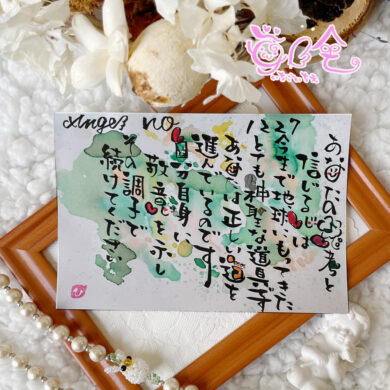 Angel no
あなたの思考と
信じる心は
今まで地球にもってきた
とても神聖な道具です
あなたは正しい道を
進んでいるのです
自分自身に
敬意を示し
その調子で
続けてください